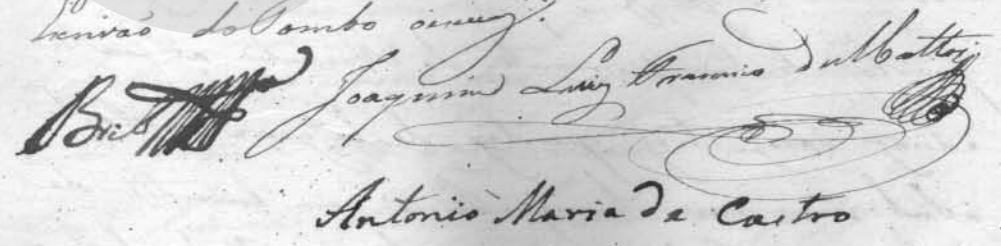 Escrivão do Tombo
Brito Joaquim Luiz Francisco de Mattos
Antonio Maria de Castro